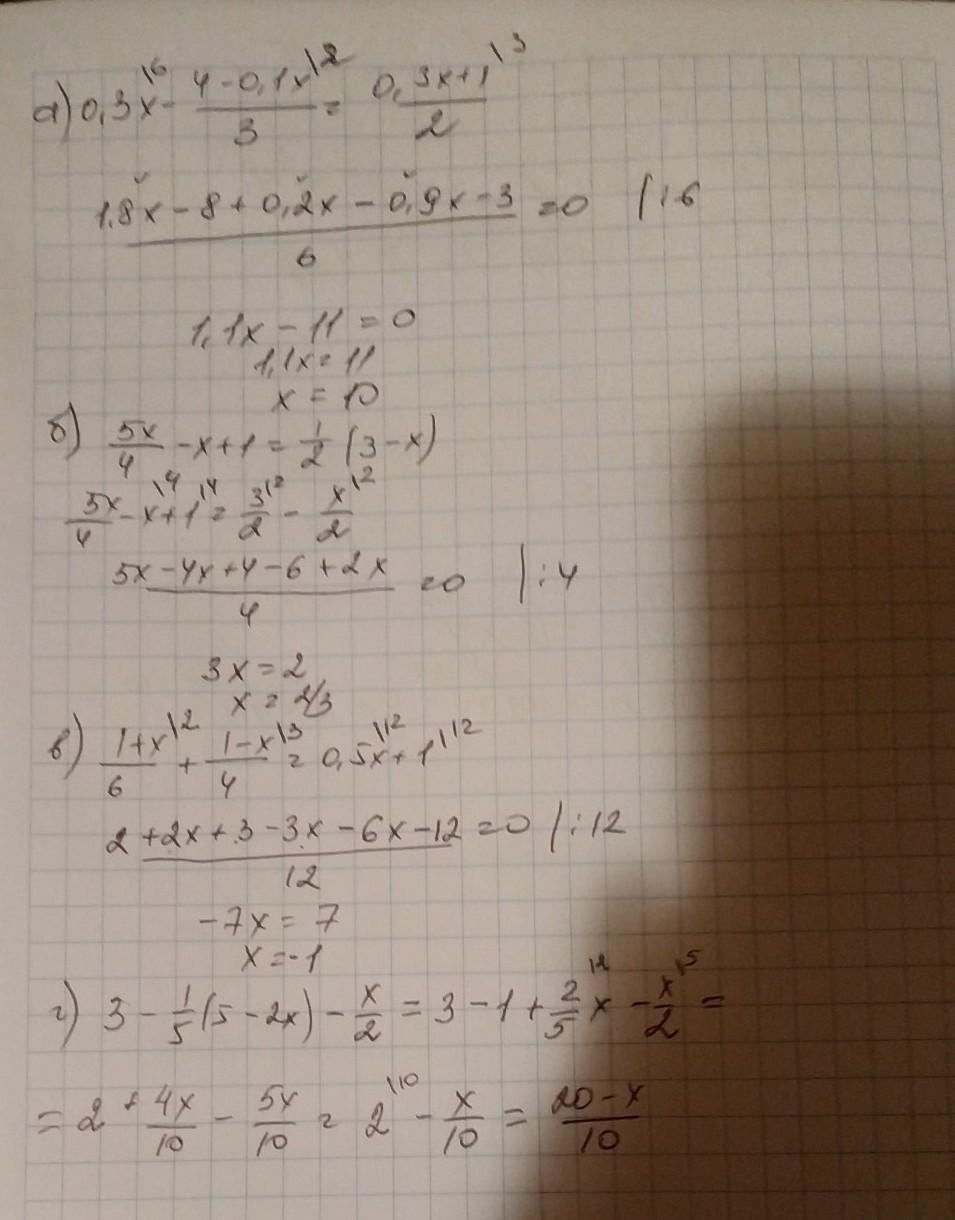 а) 0,3x\6 - (4-0,1x)/3 \2 = (0,3x+1)/2 \3
(1,8x - 8 + 0,2x - 0,9x - 3)/6 = 0 |:6
1,1x - 11 = 0
1,1x = 11
x = 10
б) 5x/4 - x + 1 = 1/2 (3 - x)
5x/4 - x\4 + 1\4 = 3/2 \2 - x/2 \2
(5x - 4x + 4 - 6 + 2x)/4 = 0 |:4
3x = 2
x = 2/3
в) (1+x)/6 \2 + (1-x)/4 \3 = 0,5x\12 + 1\12
(2 + 2x + 3 - 3x - 6x - 12)/12 = 0 |:12
-7x = 7
x = -1
г) 3 - 1/5 (5 - 2x) - x/2 = 3 - 1 + 2/5 x\2 - x/2 \5 =
= 2 + 4x/10 - 5x/10 = 2\10 - x/10 = (20 - x)/10